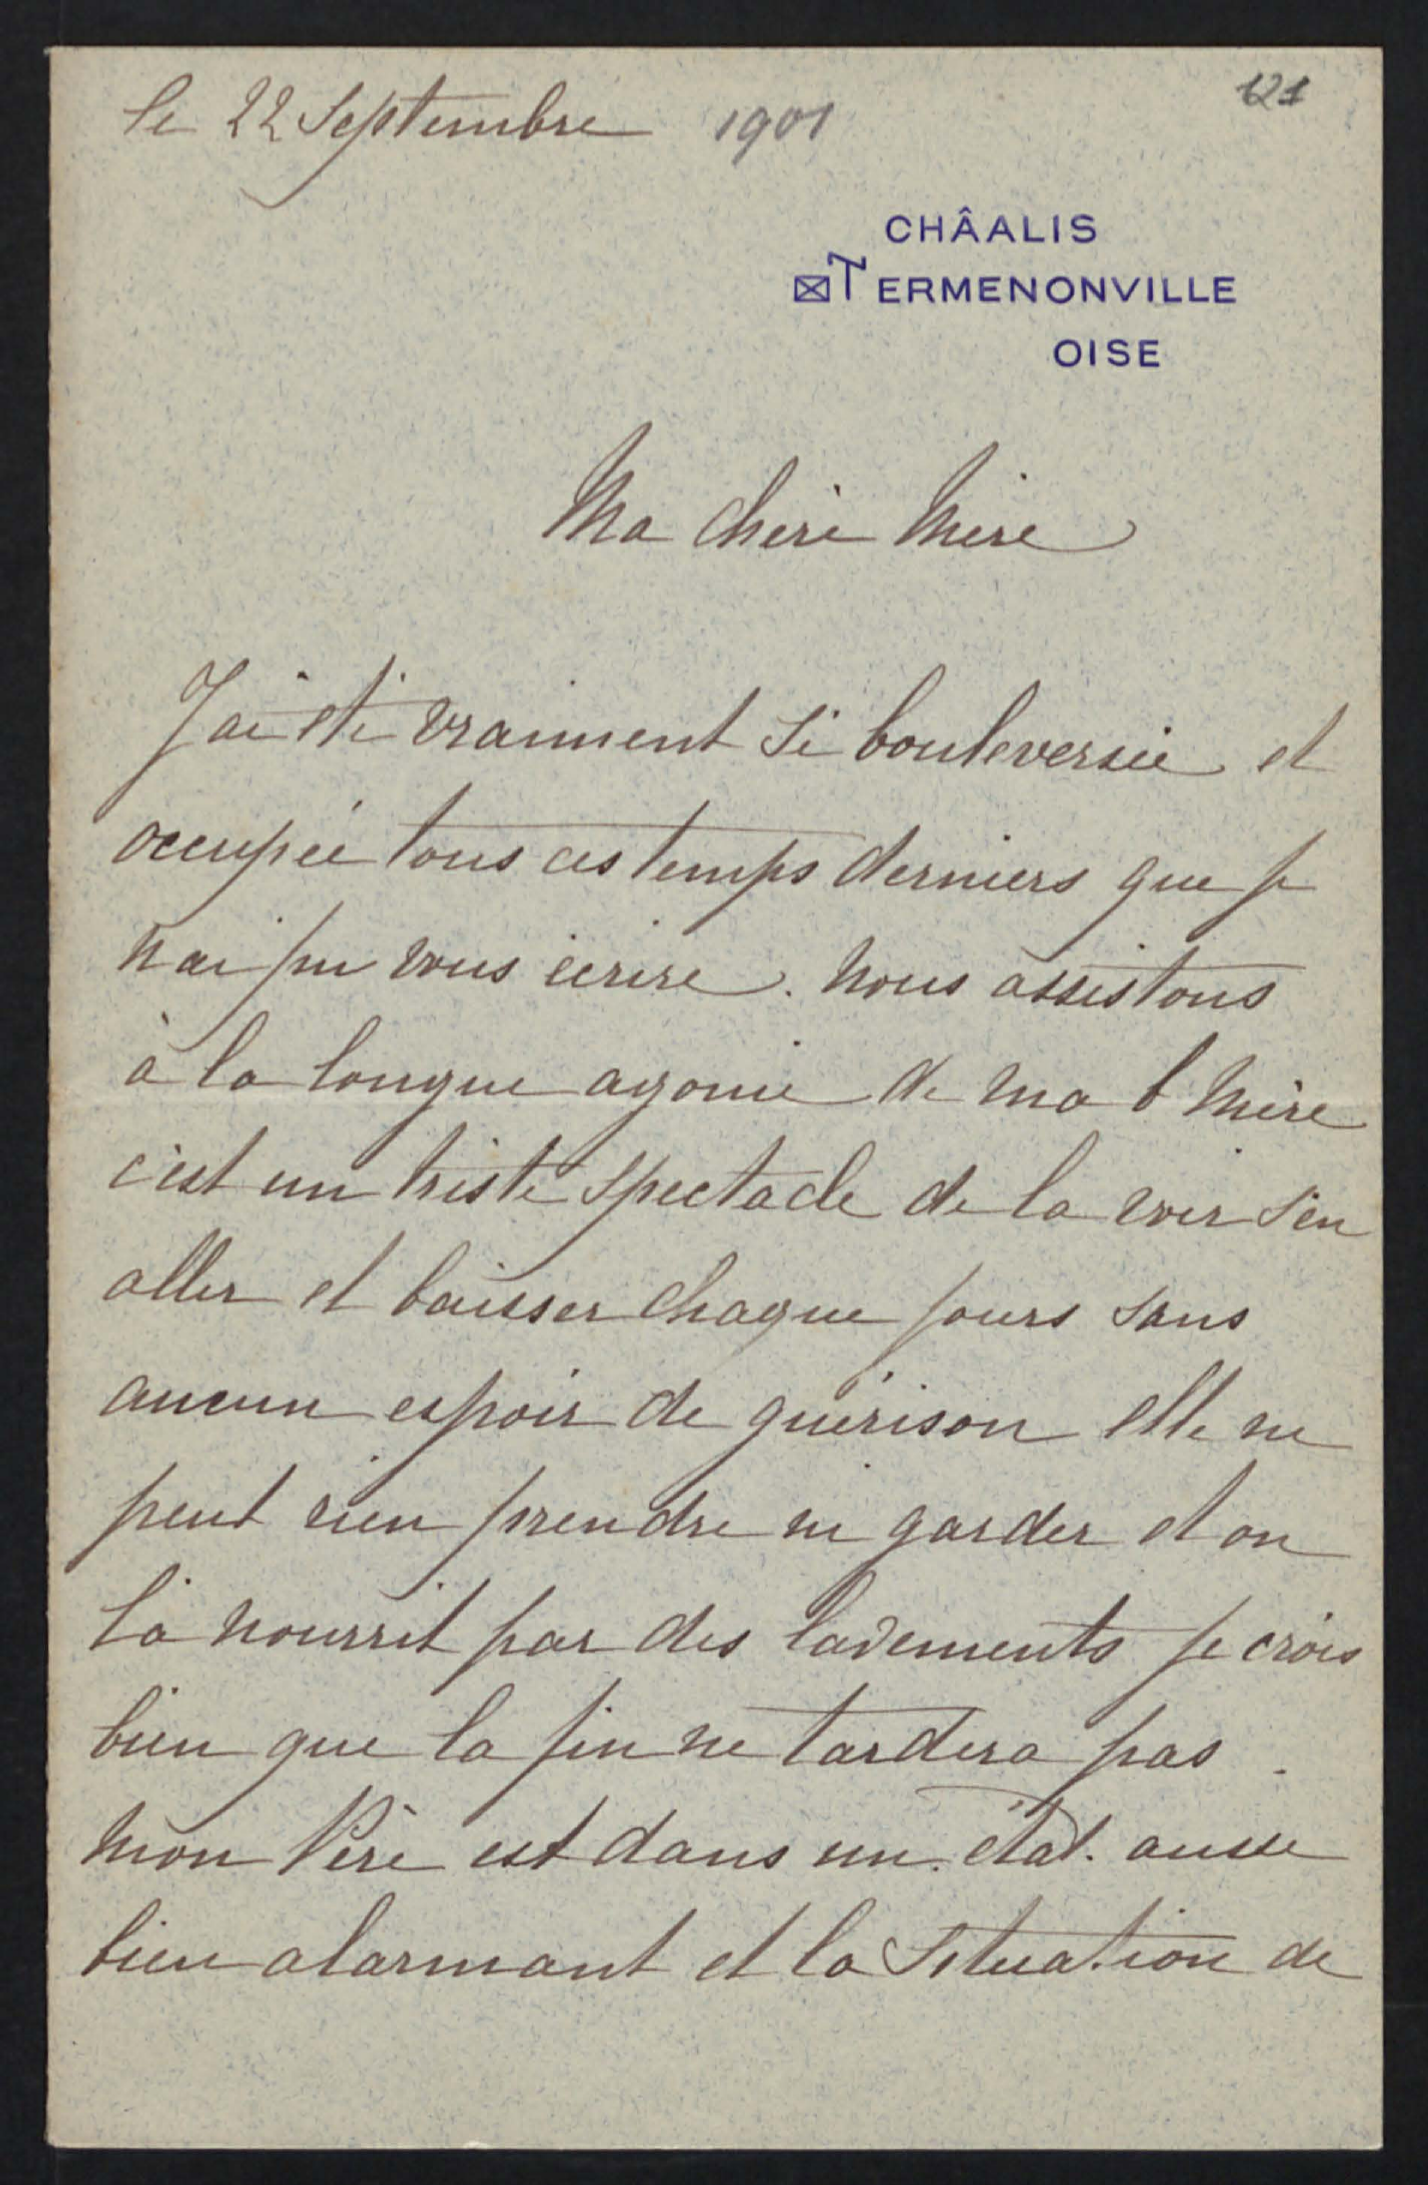 le 22 Septembre 1901
121
CHÂALIS
ERMENONVILLE
OISE
Ma chère Mère
J'ai été vraiment si bouleversée et
occupée tous ces temps derniers que je
n'ai pu vous écrire. Nous assistons
à la longue agonie de ma b Mère
c'est un triste spectacle de la voir s'en
aller et baisser chaque jours sans
aucun espoir de guérison elle ne
peut rien prendre ni garder et on
la nourrit par des lavements je crois
bien que la fin ne tardera pas.
Mon Père est dans un état aussi
bien alarmant et la situation de